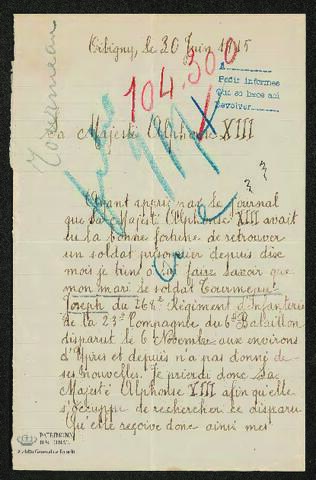 Tourneau
Cibigny, le 20 Juin 1915
104.300
Pedir informes
que se hace aqui
devolver
Sa Majesté Alphonse XIII
Ayant appris par le journal
que Sa Majesté Alphonse XIII avait
eu la bonne fortune de retrouver
un soldat prisonnier depuis dix
mois je tiens à lui faire savoir que
mon mari le soldat Tourneau
Joseph du 268e Régiment d'Infanterie
de la 23e Compagnie du 6e Bataillon
disparut le 6 Novembre aux environs
d'Ypres et depuis n'a pas donné de
ses nouvelles. Je prierai donc Sa
Majesté Alphonse XIII afin qu'elle
s'occupe de rechercher ce disparu
Qu'elle reçoive donc ainsi mes
PATRIMONIO
NACIONAL